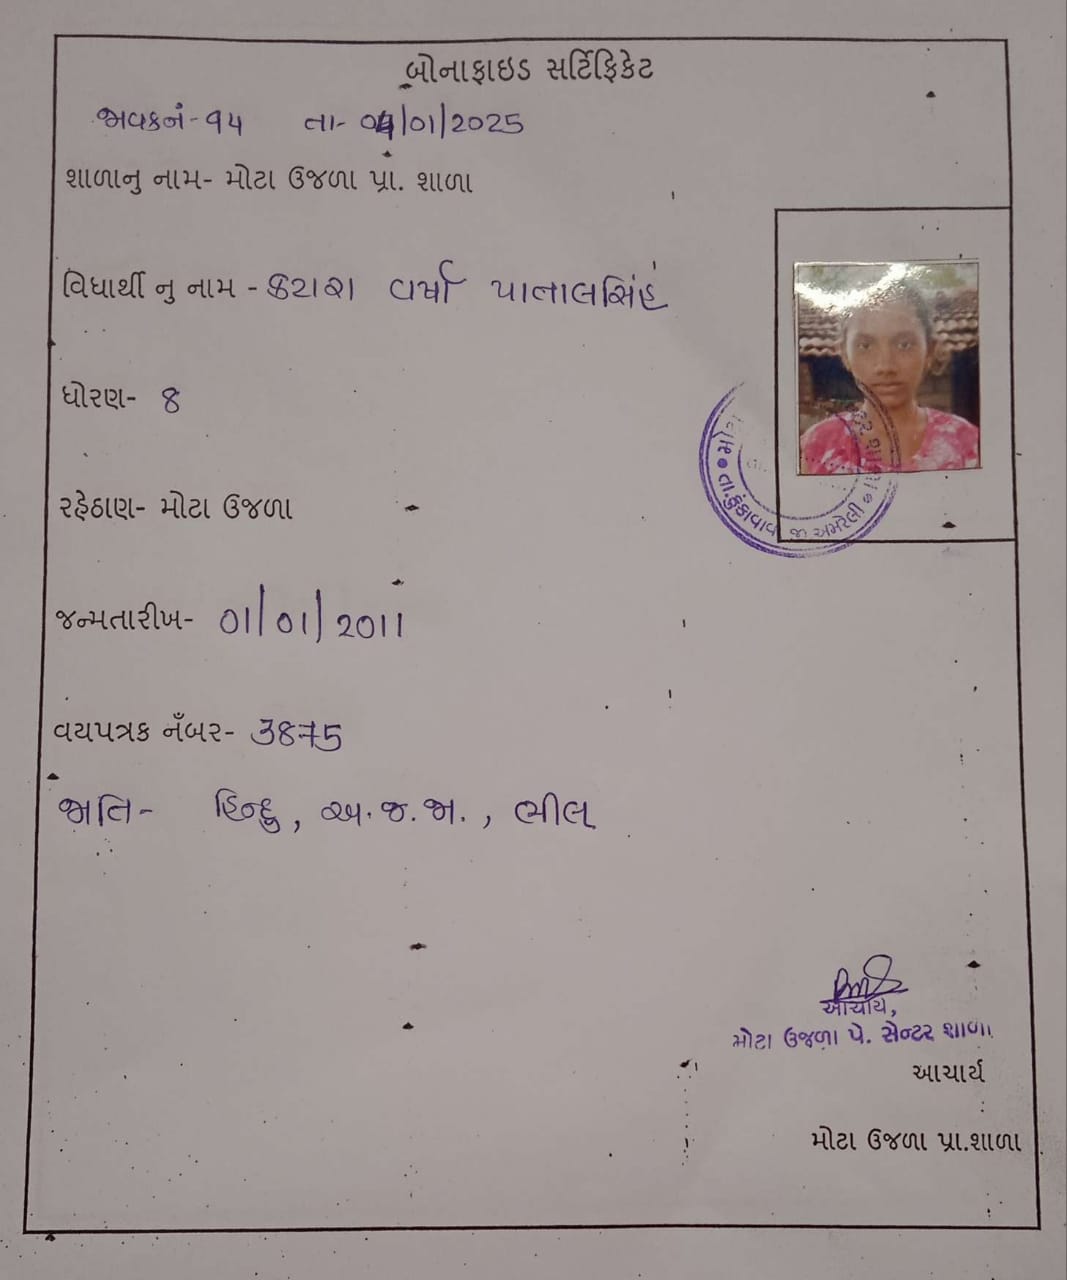 બોનાફાઇડ સર્ટિફિકેટ
જાવકનં-૧૫ તા- 04/01/2025
શાળાનુ નામ- મોટા ઉજળા પ્રા. શાળા
વિધાર્થી નુ નામ - કટારા વર્ષા પાતાલસિંહ
ધોરણ- 8
રહેઠાણ- મોટા ઉજળા
જન્મતારીખ- 01/01/2011
વયપત્રક નઁબર- 3875
જાતિ- હિન્દુ, અ.જ.જા., ભીલ
તા.કુંકાવાવ જી અમરેલી
આચાર્ય,
મોટા ઉજળા પે. સેન્ટર શાળા
આચાર્ય
મોટા ઉજળા પ્રા.શાળા